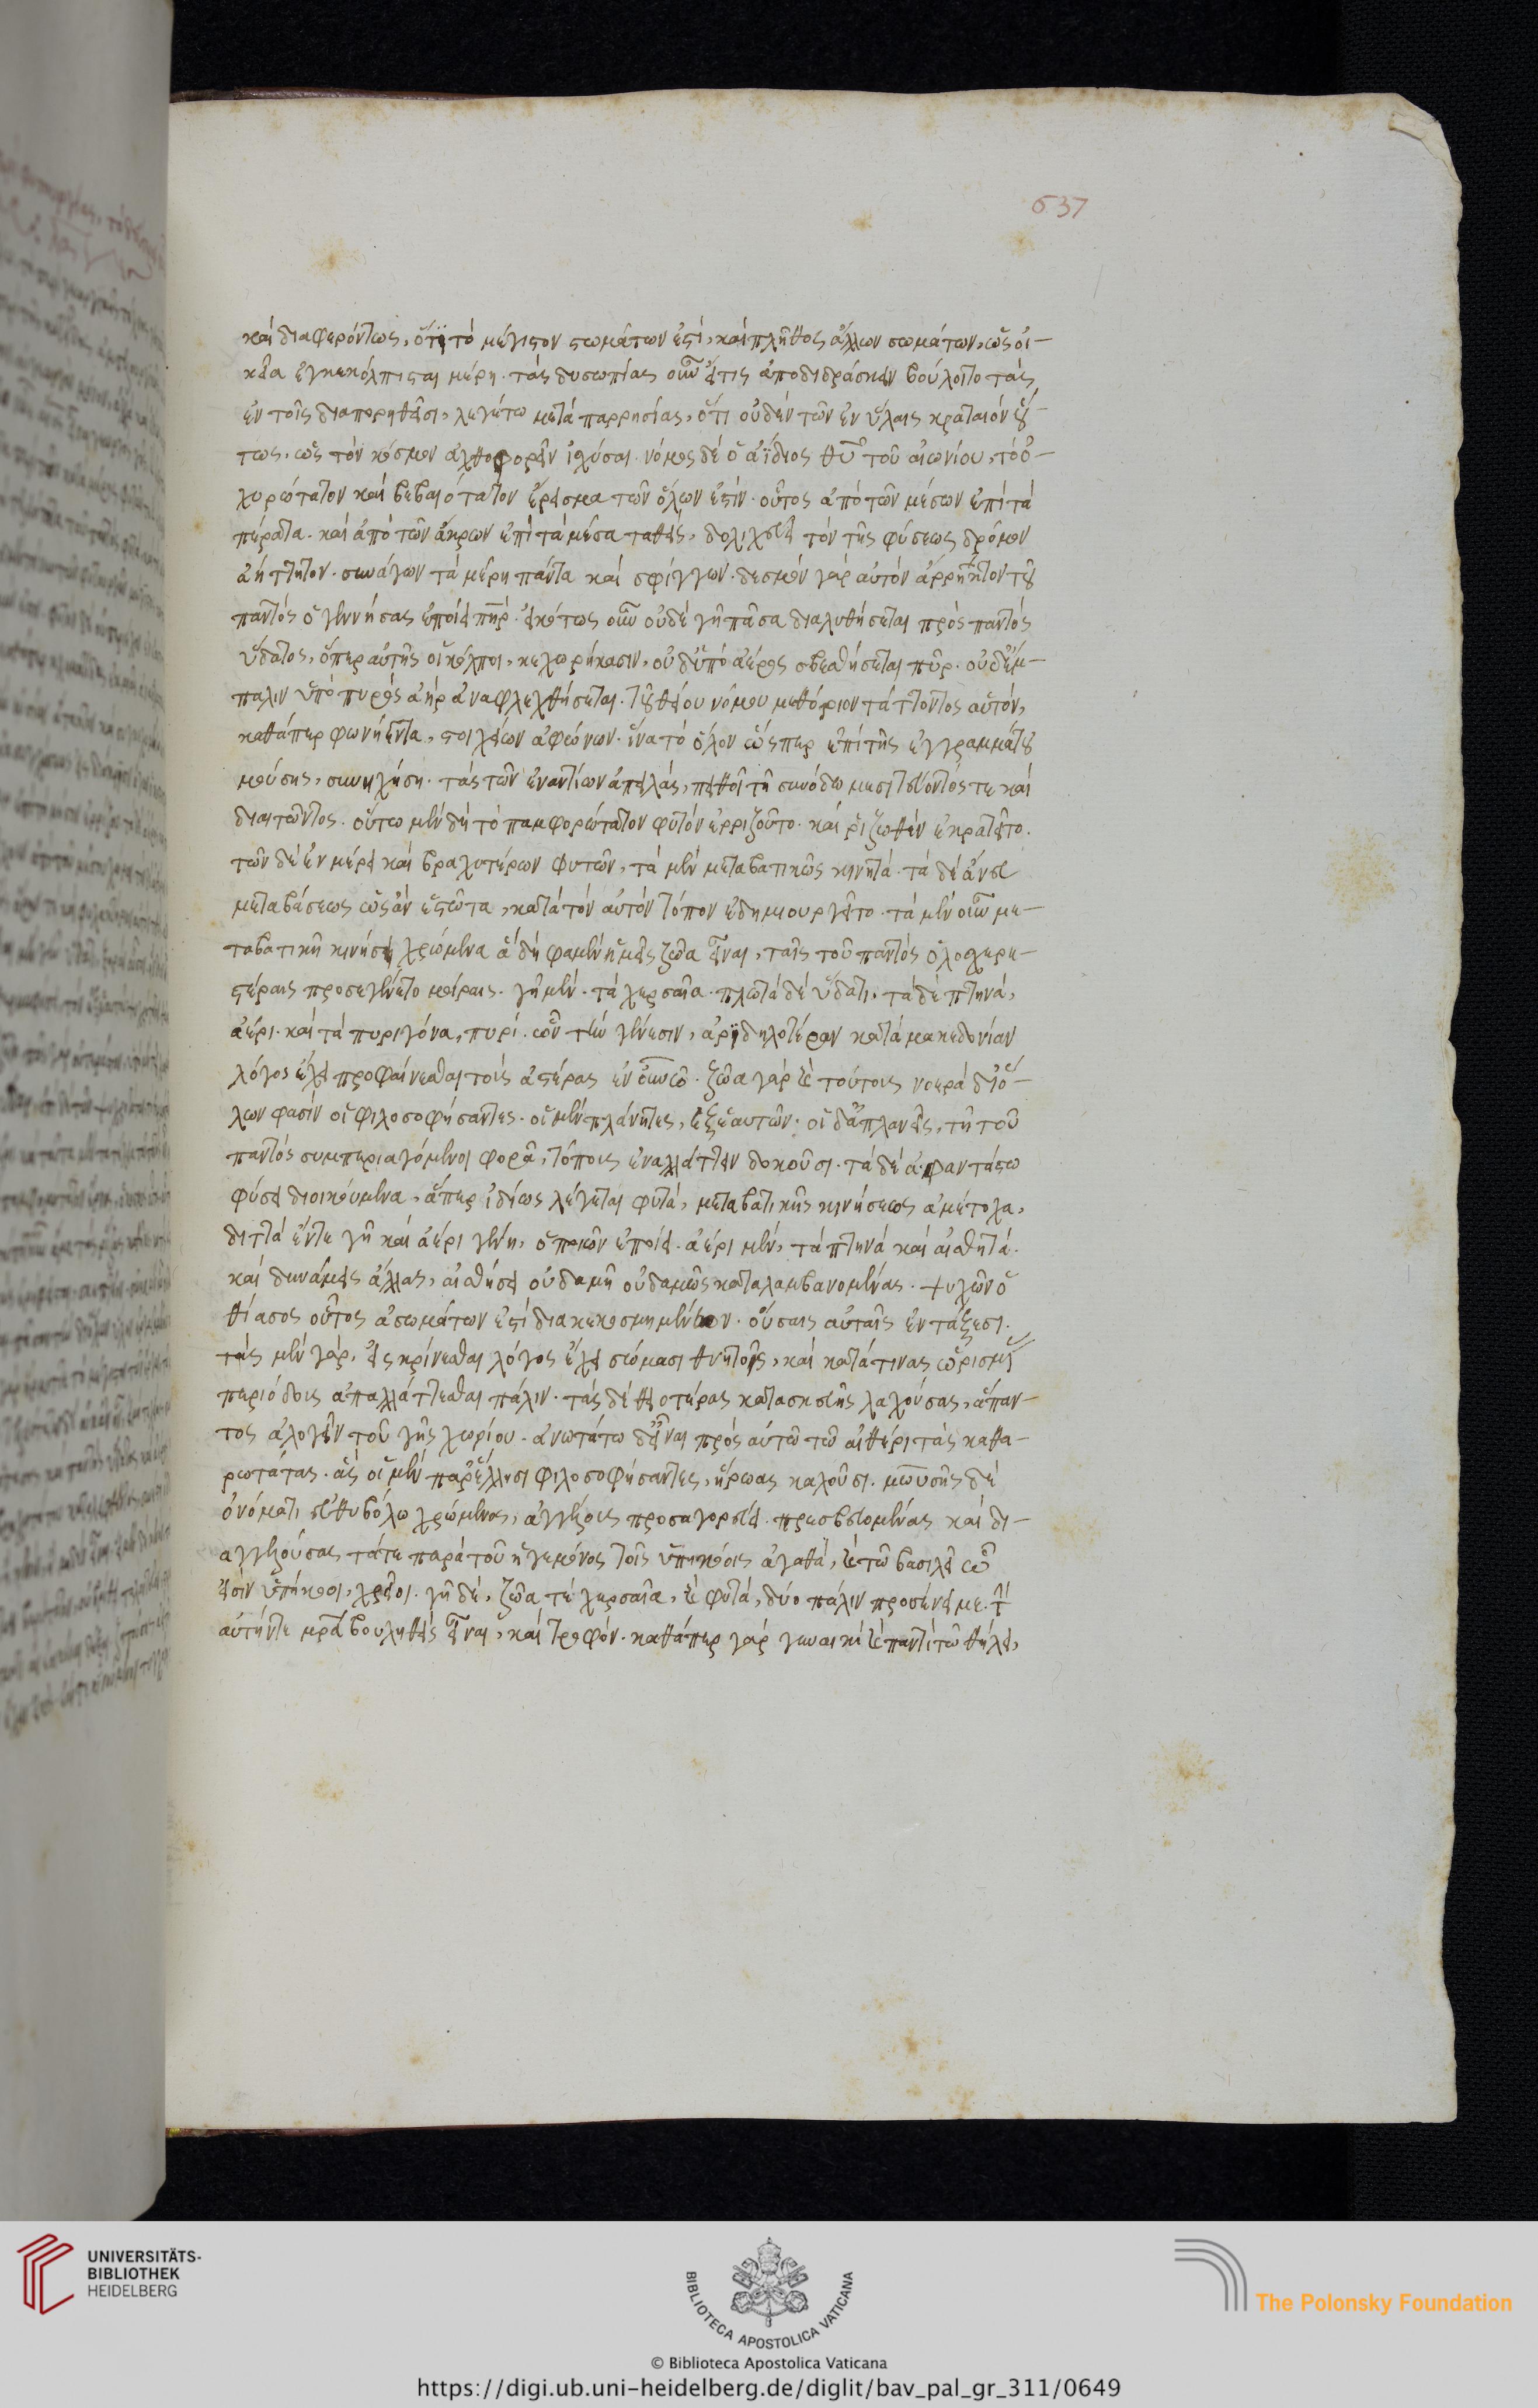 637
καὶ διαφερόντως, ὅτι τὸ μέγιστον σωμάτων ἐστὶ, καὶ πλῆθος ἄλλων σωμάτων, ὡς οἰ-
κεῖα ἐγκεκόλπισται μέρη. τὰς δυσωπίας οὖν εἴ τις ἀποδιδράσκειν βούλοιτο τὰς
ἐν τοῖς διαπορηθεῖσι, λεγέτω μετὰ παρρησίας, ὅτι οὐδὲν τῶν ἐν ὕλαις κραταιὸν οὕ-
τως, ὡς τὸν κόσμον ἀχθοφορεῖν ἰσχύσαι. νόμος δὲ ὁ ἀΐδιος θυ τοῦ αἰωνίου, τὸ ὀ-
χυρώτατον καὶ βεβαιότατον ἔρεισμα τῶν ὅλων ἐστίν. οὗτος ἀπὸ τῶν μέσων ἐπὶ τὰ
πέρατα. καὶ ἀπὸ τῶν ἄκρων ἐπὶ τὰ μέσα ταθεὶς, δολιχεύει τὸν τῆς φύσεως δρόμον
ἀήττητον. συνάγων τὰ μέρη πάντα καὶ σφίγγων. δεσμὸν γὰρ αὐτὸν ἄρρηκτον τοῦ
παντὸς ὁ γεννήσας ἐποίει πηρ. εἰκότως οὖν οὐδὲ γῆ πᾶσα διαλυθήσεται πρὸς παντὸς
ὕδατος, ὅπερ αὐτῆς οἱ κόλποι, κεχωρήκασιν, οὐδ' ὑπὸ ἀέρος σβεσθήσεται πῦρ. οὐδ' ἔμ-
παλιν ὑπὸ πυρὸς ἀὴρ ἀναφλεχθήσεται. τοῦ θείου νόμου μεθόριον τάττοντος αὑτὸν,
καθάπερ φωνήεντα, στοιχείων ἀφώνων. ἵνα τὸ ὅλον ὥσπερ ἐπὶ τῆς ἐγγραμμάτου
μούσης, συνηχήση. τὰς τῶν ἐναντίων ἀπειλὰς, πειθοῖ τῇ συνόδω μεσιτεύοντός τε καὶ
διαιτῶντος. οὕτω μὲν δὴ τὸ παμφορώτατον φυτὸν ἐρριζοῦτο. καὶ ῥιζωθὲν ἐκρατεῖτο.
τῶν δὲ ἐν μέρει καὶ βραχυτέρων φυτῶν, τὰ μὲν μεταβατικῶς κινητά. τὰ δὲ ἄνευ
μεταβάσεως ὡς ἂν ἑστῶτα, κατὰ τὸν αὐτὸν τόπον ἐδημιουργεῖτο. τὰ μὲν οὖν με-
ταβατικῇ κινήσει χρώμενα ἃ δή φαμεν ἡμεῖς ζῶα εἶναι, ταῖς τοῦ παντὸς ὁλοσχερε-
στέραις προσεγένετο μοίραις. γῇ μὲν. τὰ χερσαῖα. πλωτὰ δὲ ὕδατι, τὰ δὲ πτηνὰ,
ἀέρι. καὶ τὰ πυρίγονα, πυρί. ὧν τὴν γένεσιν, ἀριδηλοτέραν κατὰ μακεδονίαν
λόγος ἔχει προφαίνεσθαι τοὺς ἀστέρας ἐν ουνω. ζῶα γὰρ καὶ τούτους νοερὰ δι' ὅ-
λων φασὶν οἱ φιλοσοφήσαντες. οἱ μὲν πλάνητες, ἐξ ἑαυτῶν. οἱ δ' ἀπλανεῖς, τῇ τοῦ
παντὸς συμπεριαγόμενοι φορᾷ, τόπους ἐναλλάττειν δοκοῦσι. τὰ δὲ ἀφαντάστω
φύσει διοικούμενα, ἅπερ ἰδίως λέγεται φυτὰ, μεταβατικῆς κινήσεως ἀμέτοχα.
διττὰ ἔν τε γῇ καὶ ἀέρι γένη, ὁ ποιῶν ἐποίει. ἀέρι μὲν, τὰ πτηνὰ καὶ αἰσθητὰ.
καὶ δυνάμεις ἄλλας, αἰσθήσει οὐδαμῆ οὐδαμῶς καταλαμβανομένας. ψυχῶν ὁ
θίασος οὗτος ἀσωμάτων ἐστὶ διακεκοσμημένων. οὔσαις αὐταῖς ἐν τάξεσι.
τὰς μὲν γὰρ, εἰσκρίνεσθαι λόγος ἔχει σώμασι θνητοῖς, καὶ κατά τινας ὡρισμένας
περιόδους ἀπαλλάττεσθαι πάλιν. τὰς δὲ θειοτέρας κατασκευῆς λαχούσας, ἅπαν-
τος ἀλογεῖν τοῦ γῆς χωρίου. ἀνωτάτω δ' εἶναι πρὸς αὐτῶ τῶ αἰθέρι τὰς καθα-
ρωτάτας. ἃς οἱ μὲν παρ' ἕλλησι φιλοσοφήσαντες, ἥρωας καλοῦσι. μωυσῆς δὲ
ὀνόματι εὐθυβόλω χρώμενος, ἀγγέλους προσαγορεύει. πρεσβευομένας καὶ δι-
αγγελλούσας τά τε παρὰ τοῦ ἡγεμόνος τοῖς ὑπηκόοις ἀγαθὰ, καὶ τῶ βασιλεῖ ὧν
εἰσὶν ὑπήκοοι, χρεῖοι. γῇ δὲ, ζῶα τὲ χερσαῖα, καὶ φυτὰ, δύο πάλιν προσένειμε. τὴν
αὐτήν τε μρα βουληθεὶς εἶναι, καὶ τροφόν. καθάπερ γὰρ γυναικὶ καὶ παντὶ τῶ θήλει,
UNIVERSITÄTS-
BIBLIOTHEK
HEIDELBERG
BIBLIOTECA APOSTOLICA VATICANA
The Polonsky Foundation
© Biblioteca Apostolica Vaticana
https://digi.ub.uni-heidelberg.de/diglit/bav_pal_gr_311/0649